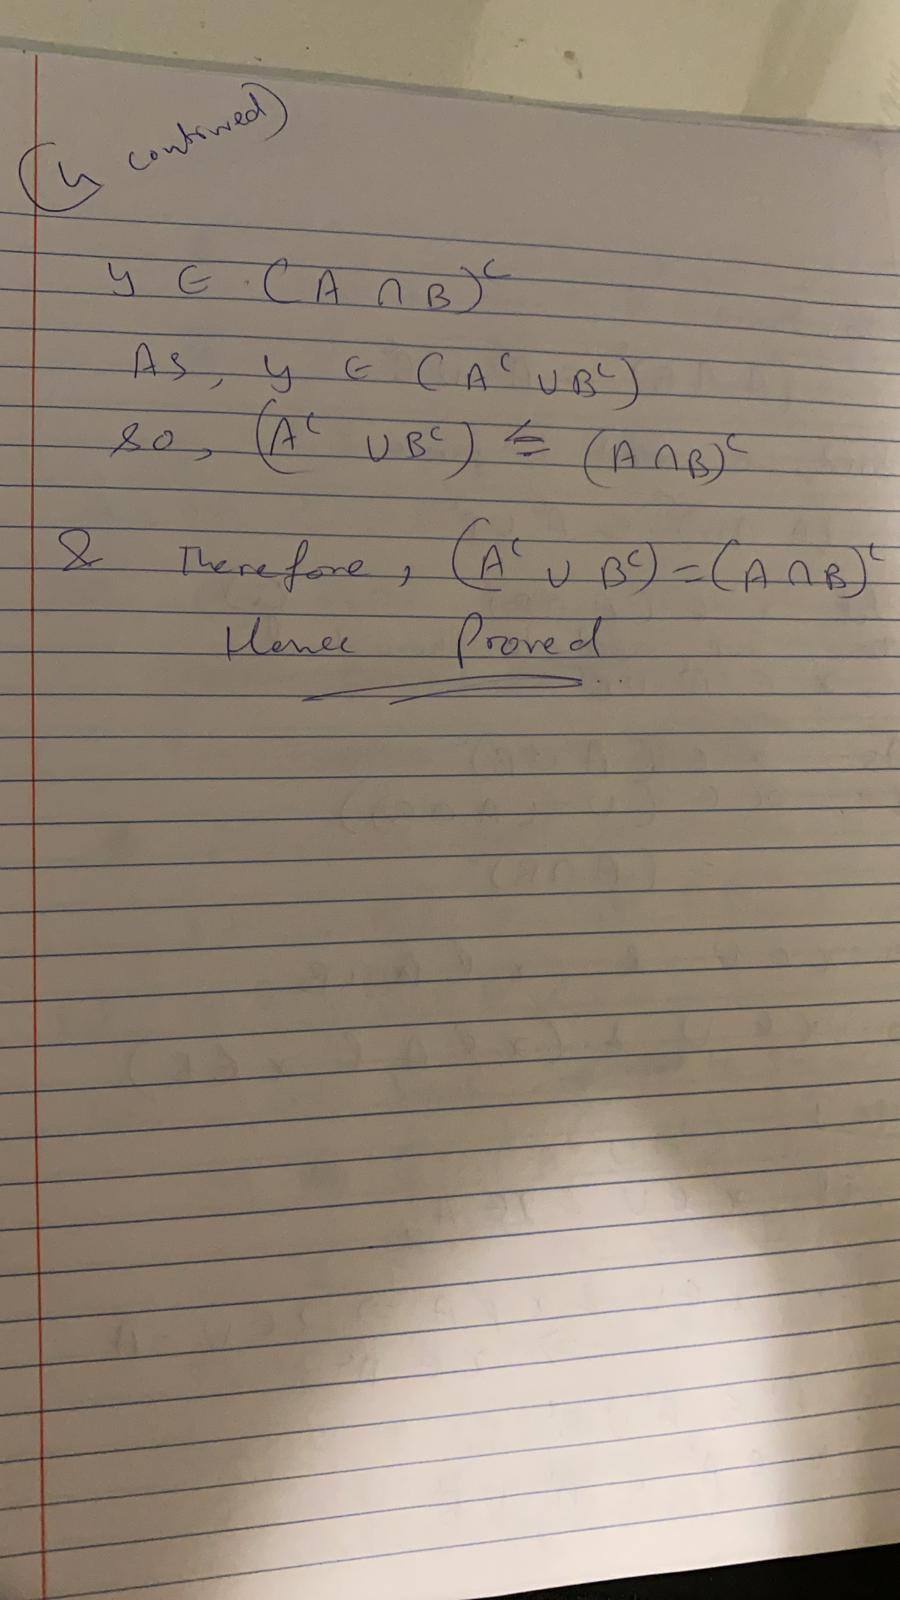 (↳ continued)
y ∈ (A ∩ B)ᶜ
As, y ∈ (Aᶜ ∪ Bᶜ)
so, (Aᶜ ∪ Bᶜ) ⊆ (A ∩ B)ᶜ
& Therefore, (Aᶜ ∪ Bᶜ) = (A ∩ B)ᶜ
Hence Proved